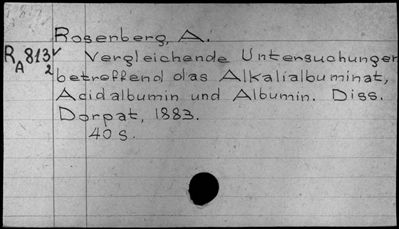 Rosenberg, A.
RA 813/2 Vergleichende Untersuchungen
betreffend das Alkalialbuminat,
Acidalbumin und Albumin. Diss.
Dorpat, 1883.
40 S.